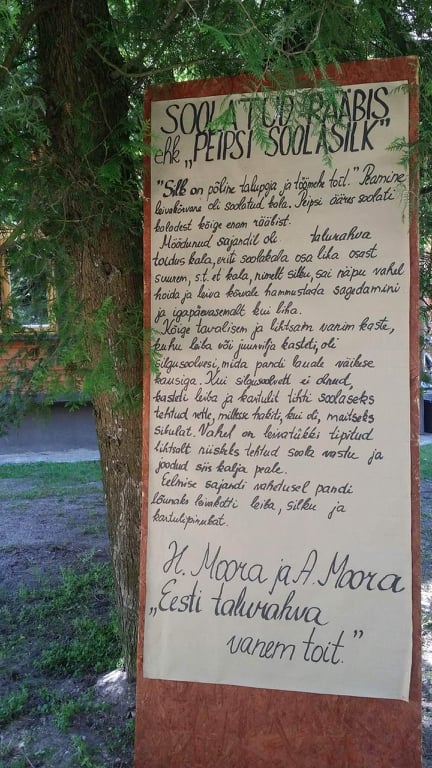 SOOLATUD RÄÄBIS
ehk „PEIPSI SOOLASILK"
"Silk on põline talupoja ja töömehe toit." Peamine
leivakõrvane oli soolatud kala. Peipsi ääres soolati
kaladest kõige enam rääbist.
Möödunud sajandil oli talurahva
toidus kala, eriti soolakala osa liha osast
suurem, s.t. et kala, nimelt silku, sai näpu vahel
hoida ja leiva kõrvale hammustada sagedamini
ja igapäevasemalt kui liha.
Kõige tavalisem ja lihtsam vanim kaste,
kuhu leiba või juurvilja kasteti, oli
silgusoolvesi, mida pandi lauale väikese
kausiga. Kui silgusoolvett ei olnud,
kasteti leiba ja kartulit tihti soolaseks
tehtud vette, millesse hakiti, kui oli, maitseks
sibulat. Vahel on leivatükki tipitud
lihtsalt niiskeks tehtud soola vastu ja
joodud siis kalja peale.
Eelmise sajandi vahetusel pandi
lõunaks leivakotti leiba, silku ja
kartulipirukat.
H. Moora ja A. Moora
„Eesti talurahva
vanem toit."